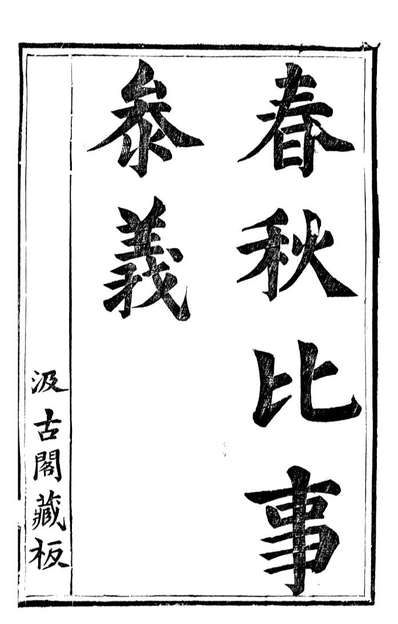 春秋比事
叅義
汲古閣藏板